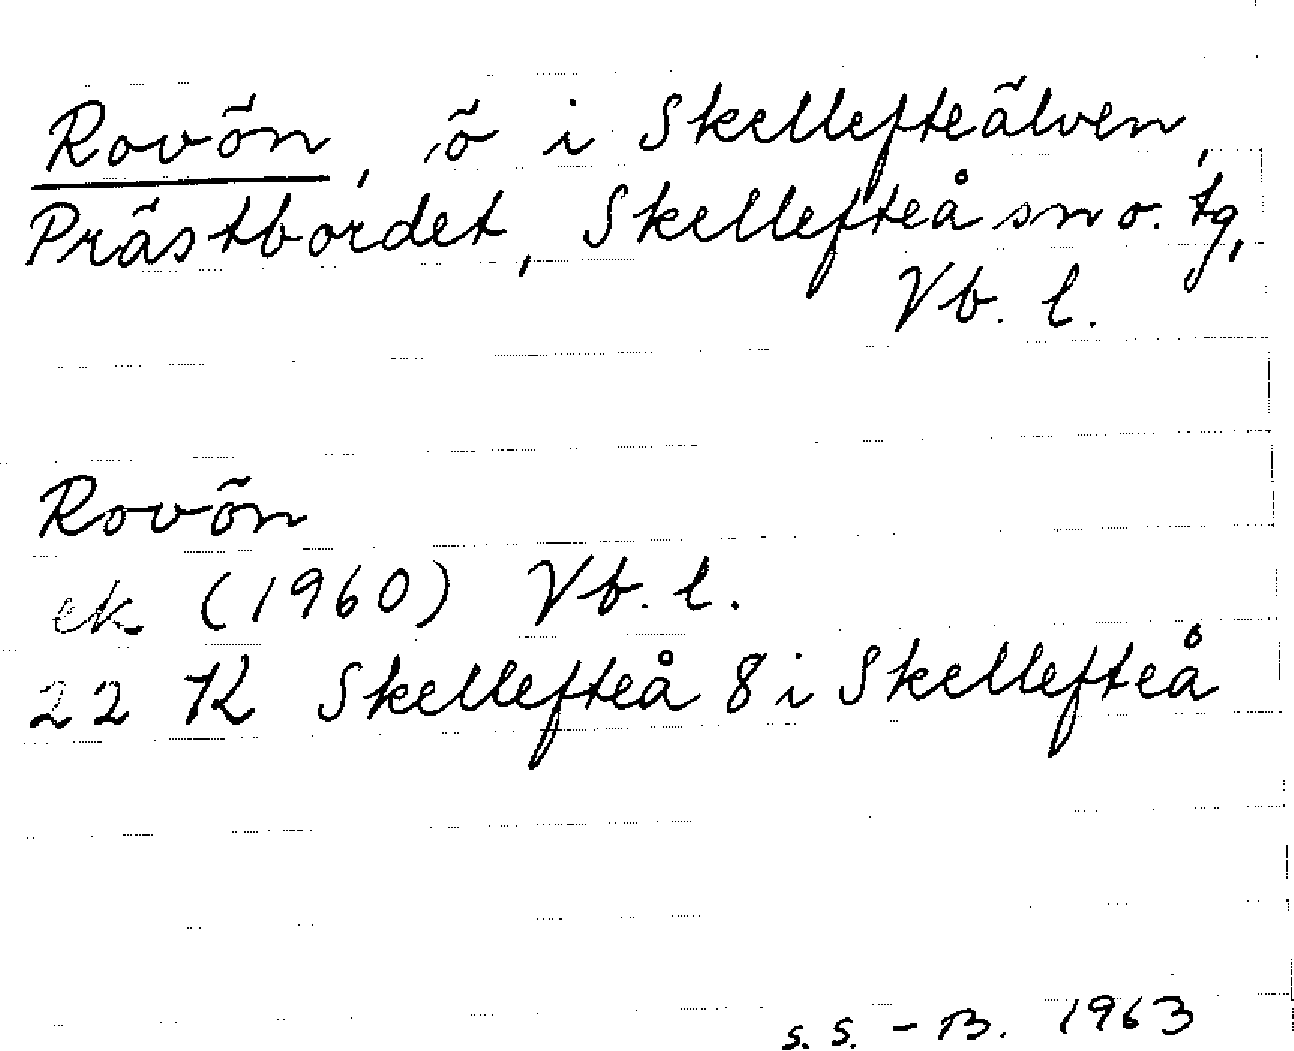 Rovön, ö i Skellefteälven,
Prästbordet, Skellefteå sn o. tg,
Vb. l.
Rovön
ek (1960) Vb. l.
22 K Skellefteå 8 i Skellefteå
S. S. - B. 1963